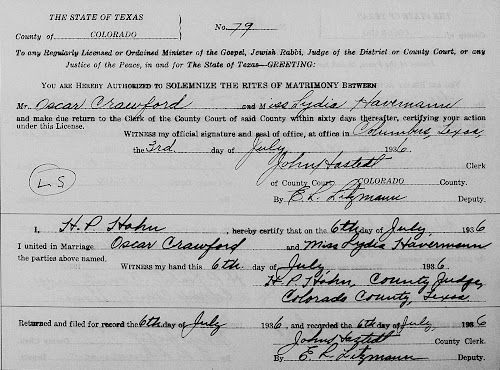 THE STATE OF TEXAS
County of COLORADO No. 79
To any Regularly Licensed or Ordained Minister of the Gospel, Jewish Rabbi, Judge of the District or County Court, or any
Justice of the Peace, in and for The State of Texas—GREETING:
YOU ARE HEREBY AUTHORIZED TO SOLEMNIZE THE RITES OF MATRIMONY BETWEEN
Mr. Oscar Crawford and Miss Lydia Havemann
and make due return to the Clerk of the County Court of said County within sixty days thereafter, certifying your action
under this License.
WITNESS my official signature and seal of office, at office in Columbus, Texas,
the 3rd. day of July 1936
John Hastedt Clerk
LS
of County Court COLORADO County.
By E. R. Litzmann Deputy.
I, H. P. Hahn, hereby certify that on the 6th day of July, 1936
I united in Marriage Oscar Crawford and Miss Lydia Havermann
the parties above named.
WITNESS my hand this 6th. day of July, 1936.
H. P. Hahn, County Judge,
Colorado County, Texas.
Returned and filed for record the 6th day of July 1936, and recorded the 6th day of July, 1936
John Hastedt County Clerk.
By E. R. Litzmann Deputy.